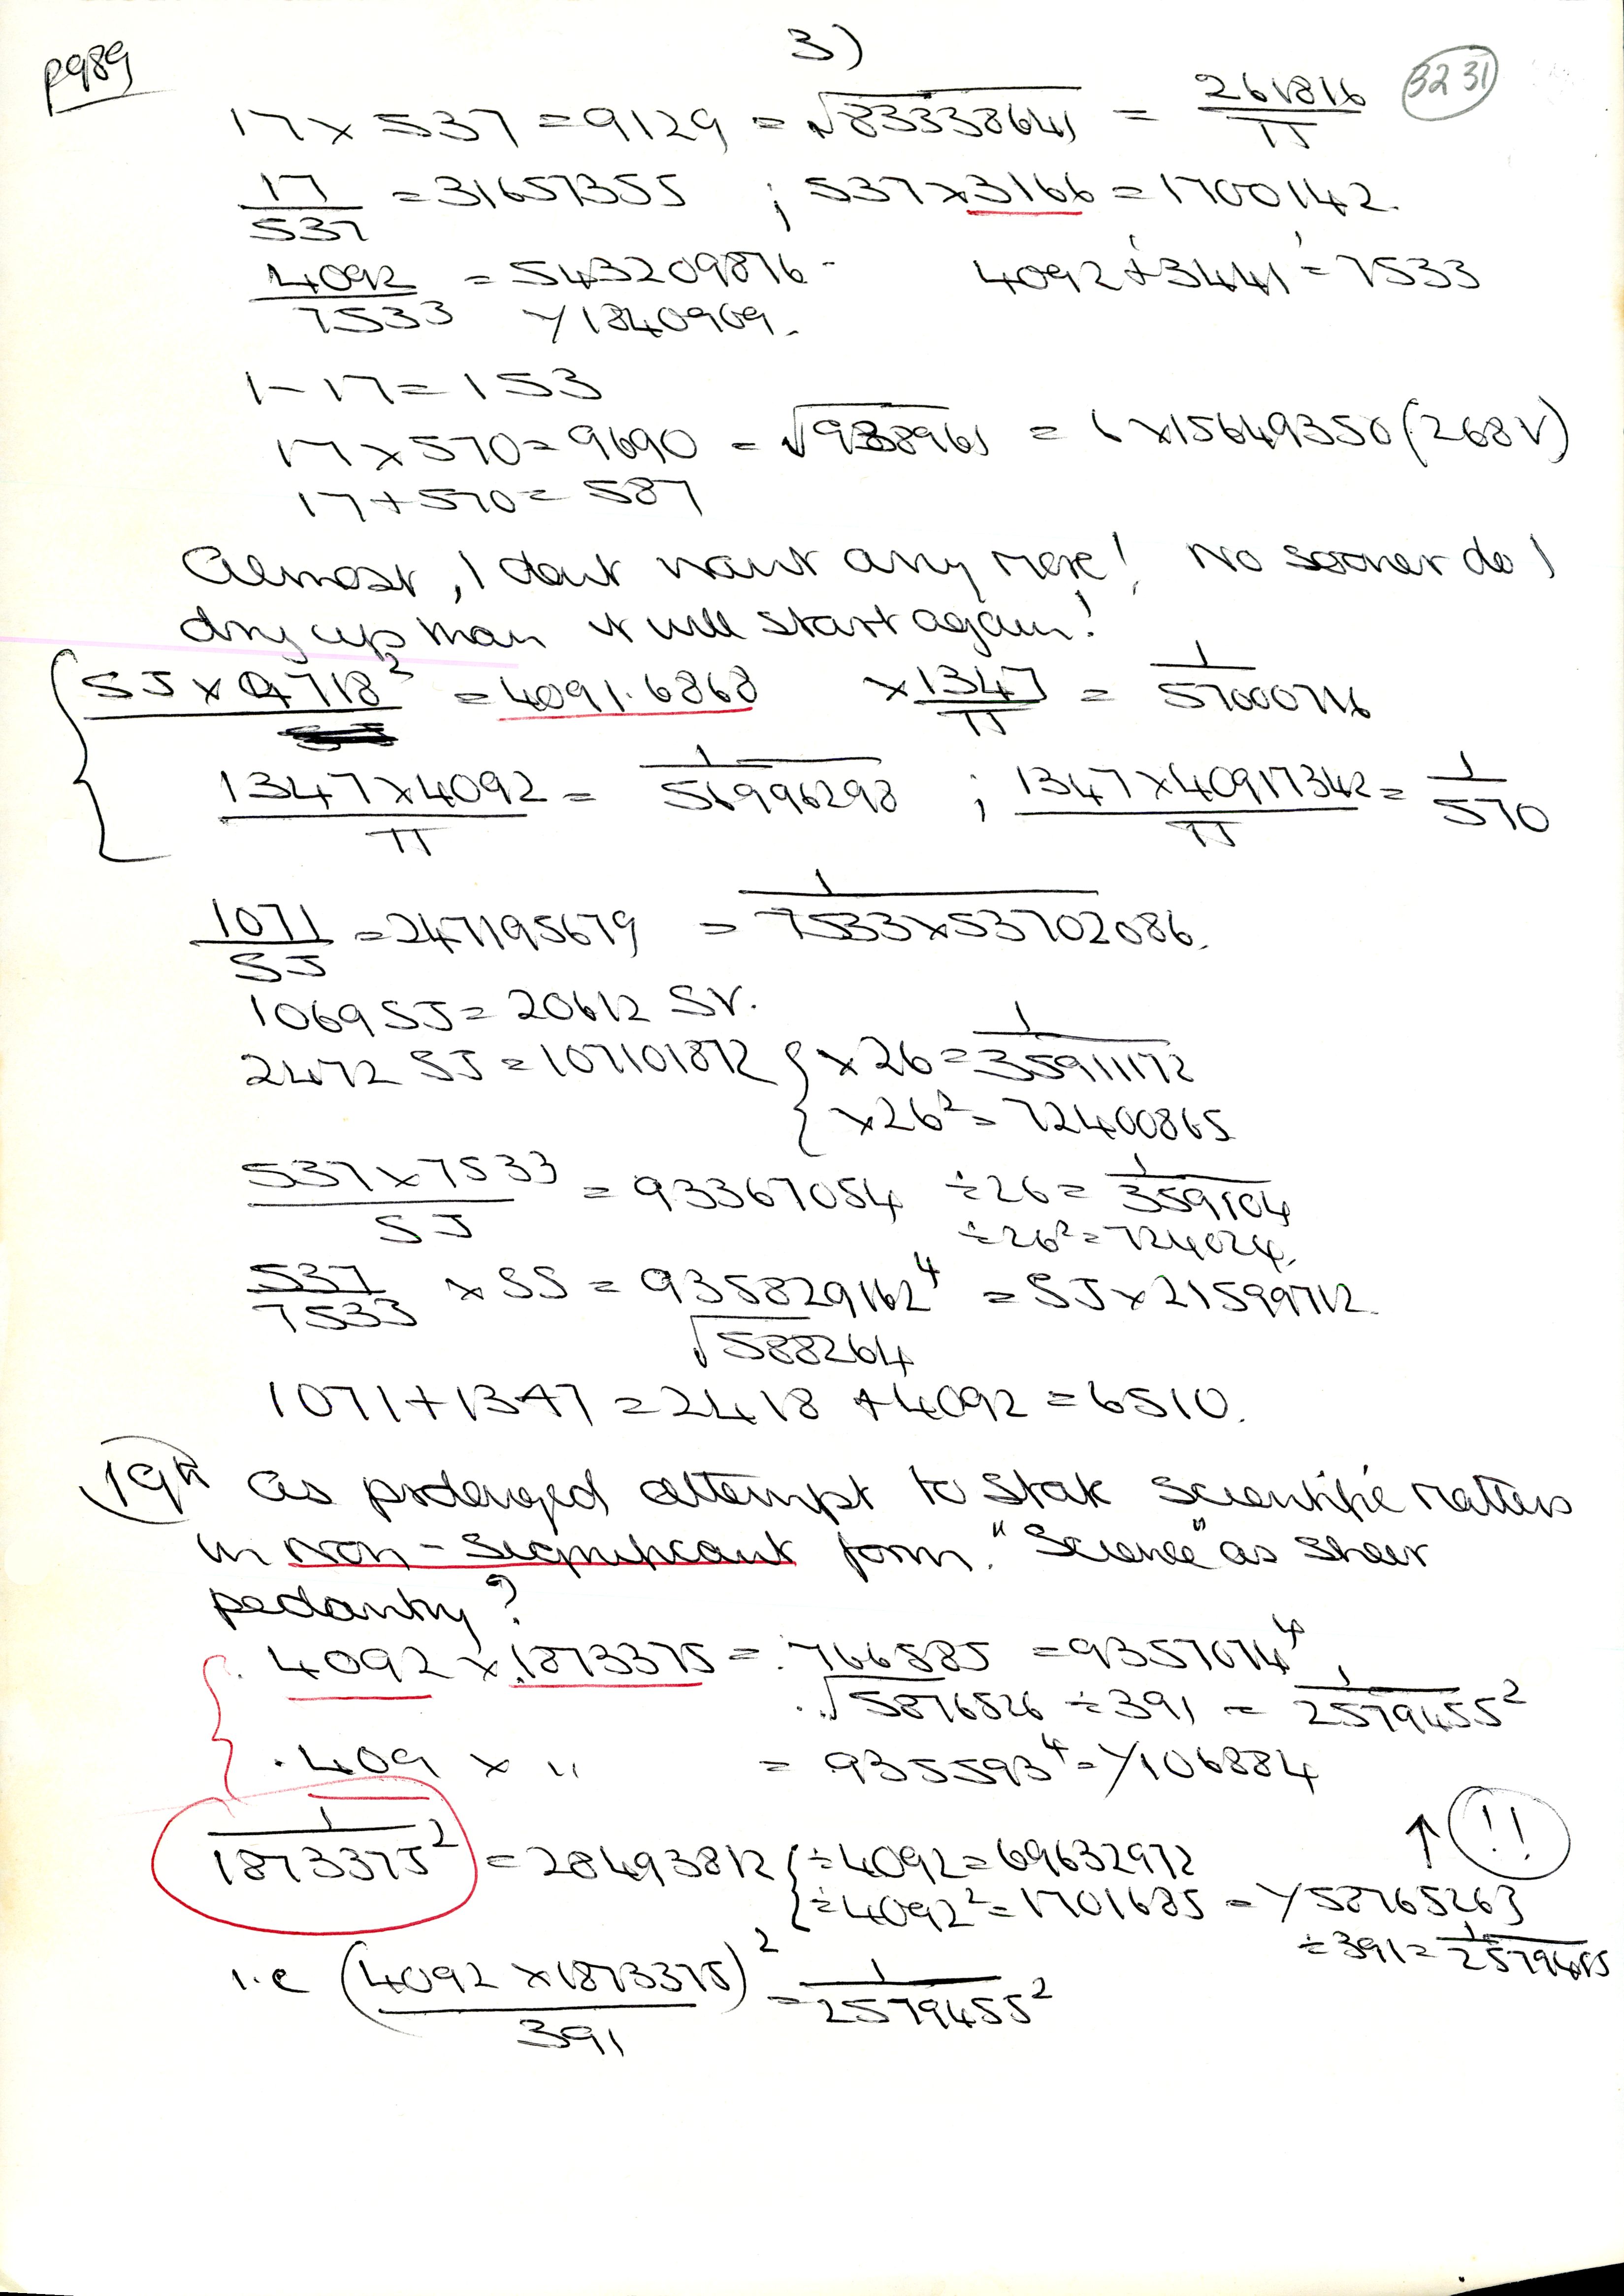 P989
3)
3231
17 × 537 = 9129 = √83338641 = 261816/π
17/537 = 31657355 ; 537 × 3166 = 1700142.
4092/7533 = 543209876 · 4092 + 3441 = 7533
γ1840909.
1 - 17 = 153
17 × 570 = 9690 = √9388961 = 6 × 15649350 (268V)
17 + 570 = 587
Almost, I dont want any more! No sooner do I
dry up than it will start again!
SJ × 4718² = 4091.6868 × 1347/π = 1/57000716
1347 × 4092/π = 1/56996298 ; 1347 × 40917342/π = 1/570
1071/SJ = 247195679 = 1/7533 × 53702086.
1069 SJ = 20612 SV.
2472 SJ = 107101872 { × 26 = 1/35911172
× 26² = 72400865
537 × 7533/SJ = 93367054 ÷ 26 = 1/359104
÷ 26² = 724024.
537/7533 × SS = 935829162⁴ = SJ × 21599712.
√588264
1071 + 1347 = 2418 + 4092 = 6510.
19th as prolonged attempt to state scientific matters
in non-significant form. "Science" as sheer
pedantry?
.4092 × .1873375 = .766585 = 9357074⁴
.√5876526 ÷ 391 = 1/2579455²
.409 × " = 935593⁴ = γ106884
1/1873375² = 28493812 { ÷ 4092 = 69632972
÷ 4092² = 1701685 = γ58765263
÷ 391 = 1/2579455
↑ !!
i.e (4092 × 1873375/391)² = 1/2579455²